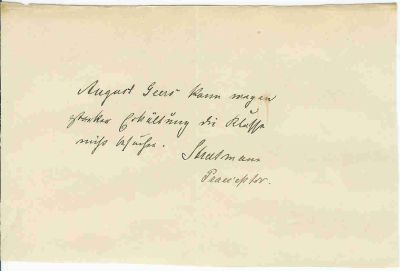 August Geers kann wegen
starker Erkältung die Klasse
nicht besuchen. Stratmann
Praeceptor.